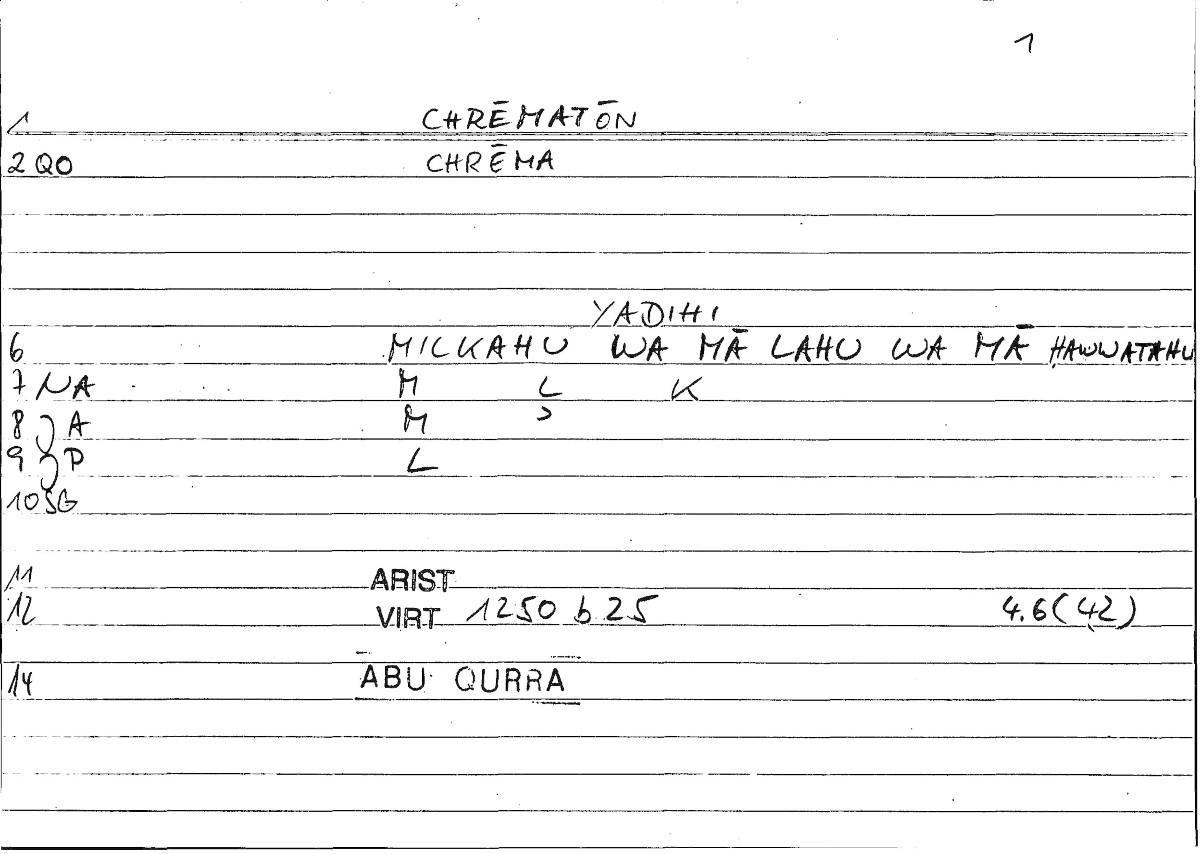 1
1 CHRĒMATŌN
2 QO CHRĒMA
YADIHI
6 MILKAHU WA MĀ LAHU WA MĀ ḤAWWATAHU
7 NA M L K
8 A M ʾ
9 P L
10 SG
11 ARIST
12 VIRT 1250 b 25 4.6(42)
14 ĀBU QURRĀ